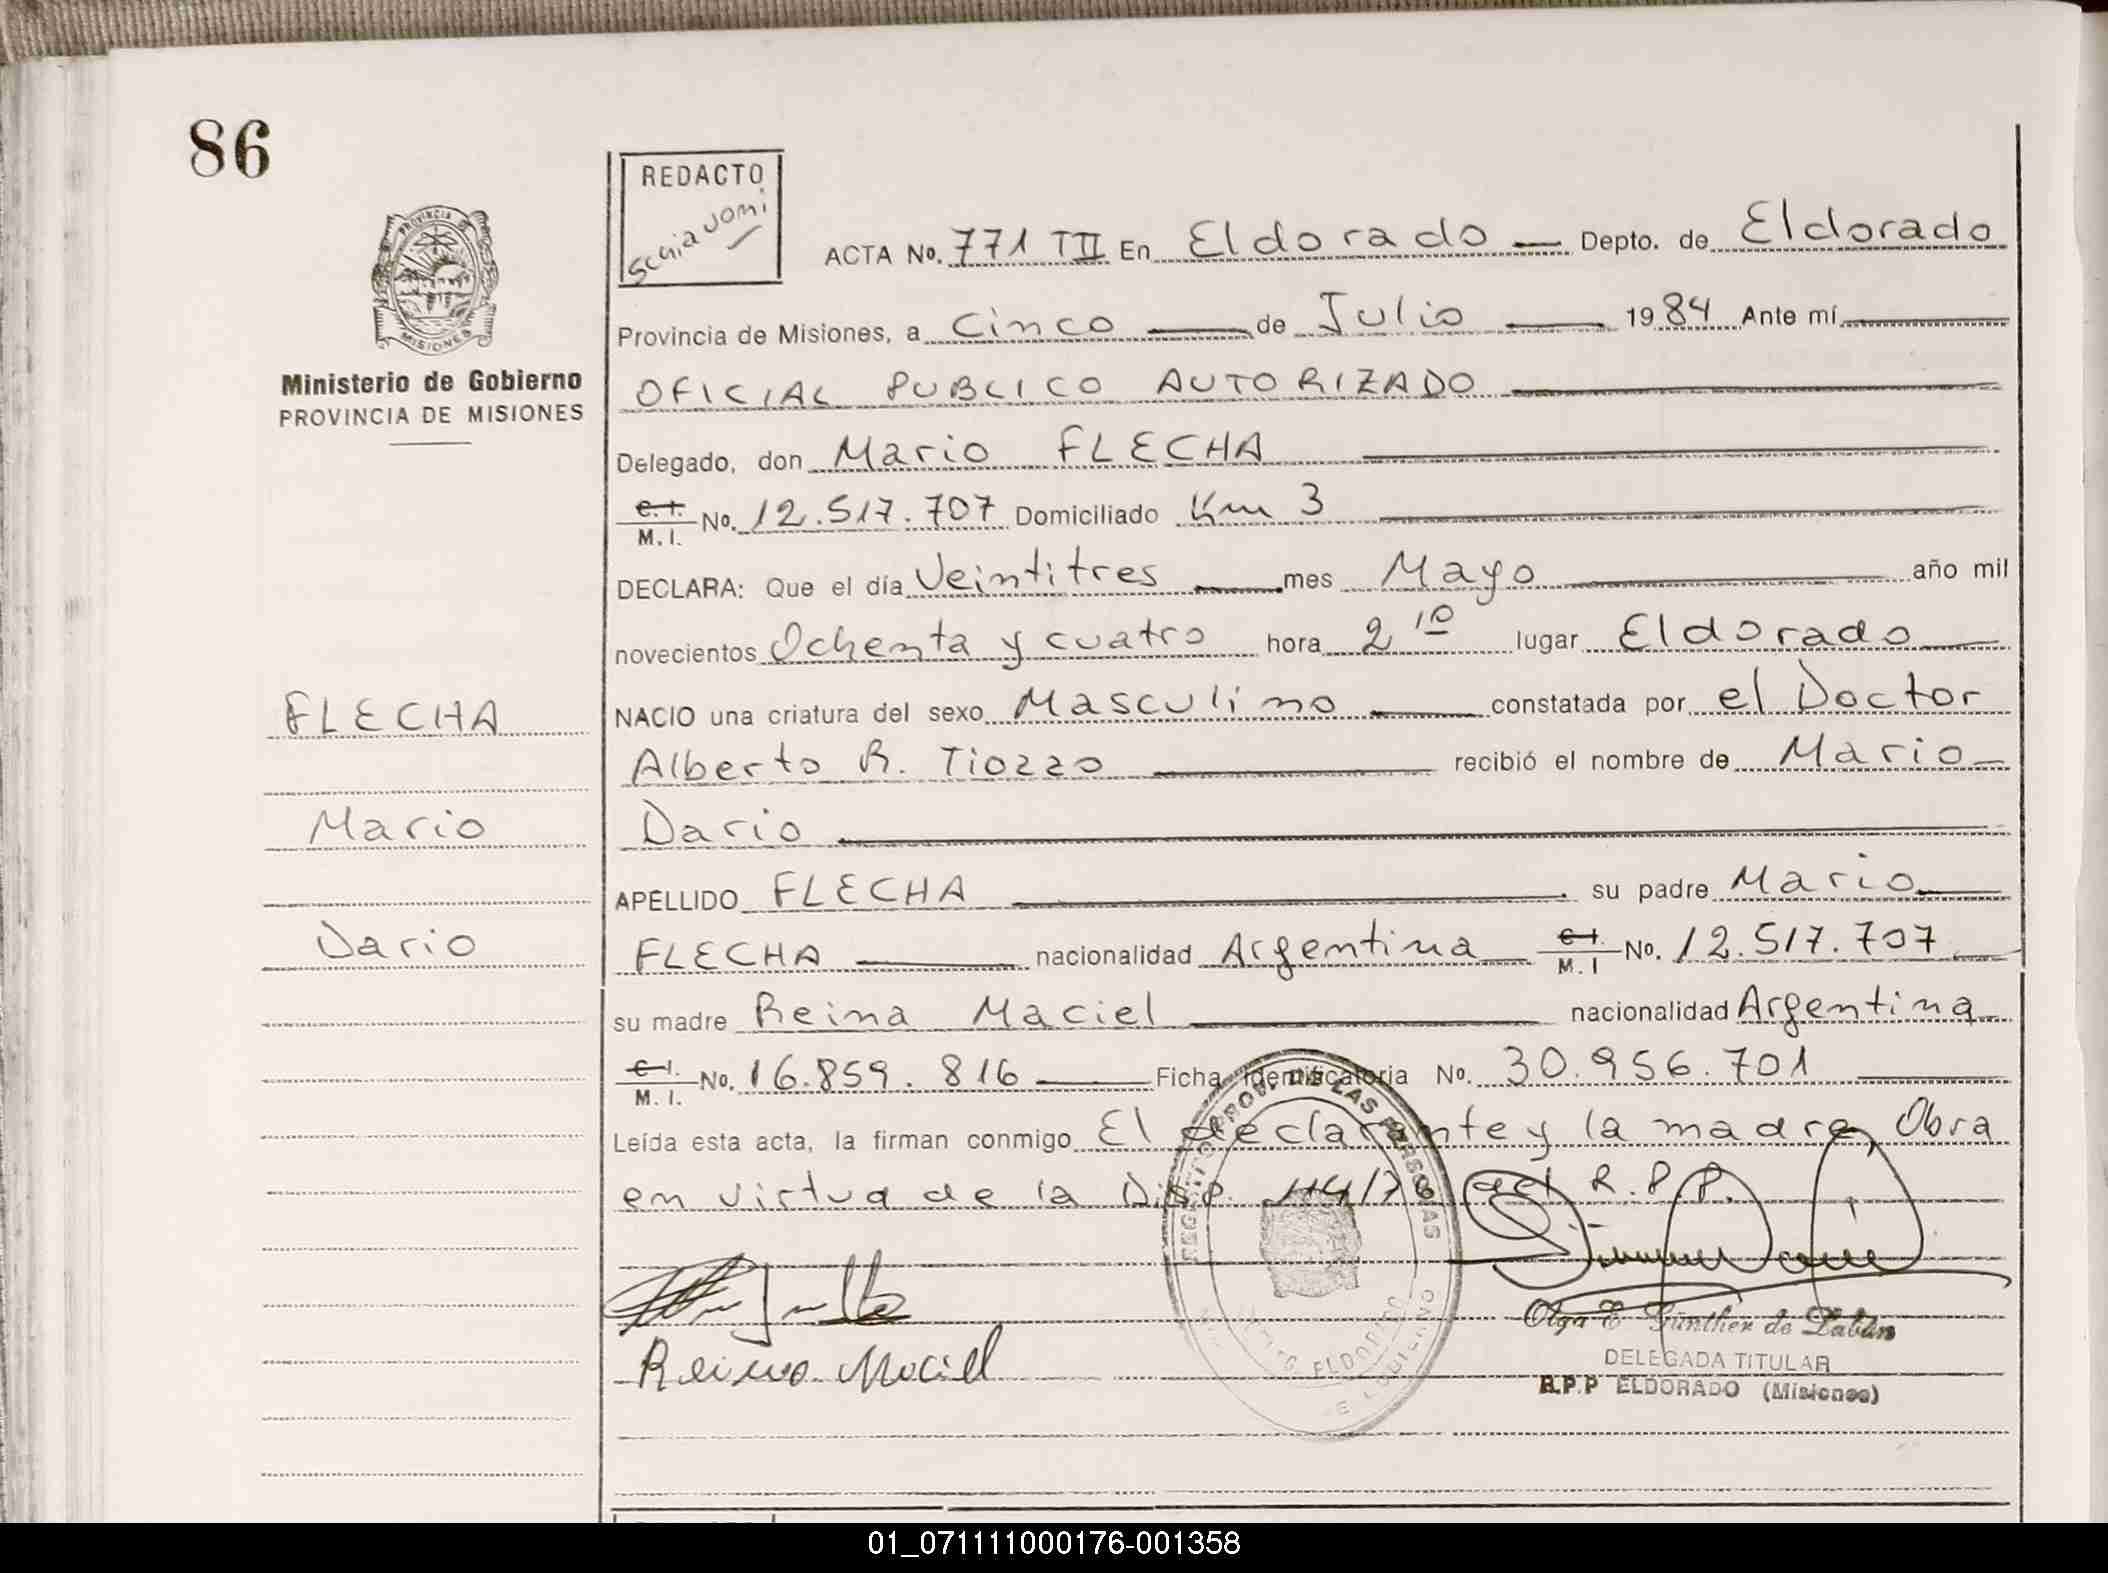 86
REDACTO
Schiavoni
PROVINCIA DE
MISIONES
Ministerio de Gobierno
PROVINCIA DE MISIONES
ACTA No. 771 TII En Eldorado Depto. de Eldorado
Provincia de Misiones, a Cinco de Julio 1984 Ante mí
OFICIAL PUBLICO AUTORIZADO
Delegado, don Mario FLECHA
C.I. M.I. No. 12.517.707 Domiciliado Km 3
DECLARA: Que el día Veintitres mes Mayo año mil
novecientos Ochenta y cuatro hora 2 10 lugar Eldorado
FLECHA
NACIO una criatura del sexo Masculino constatada por el Doctor
Alberto R. Tiozzo recibió el nombre de Mario
Mario
Dario
APELLIDO FLECHA su padre Mario
Dario
FLECHA nacionalidad Argentina C.I. M.I No. 12.517.707
su madre Reina Maciel nacionalidad Argentina
C.I. M.I. No. 16.859.816 Ficha Identificatoria No. 30.956.701
Leída esta acta, la firman conmigo El declarante y la madre, Obra
en virtud de la Disp. 114/78 del R.P.P.
REGISTRO PROV. DE LAS PERSONAS
ELDORADO
Reina Maciel
Olga E. Günther de Zabán
DELEGADA TITULAR
R.P.P ELDORADO (Misiones)
01_071111000176-001358